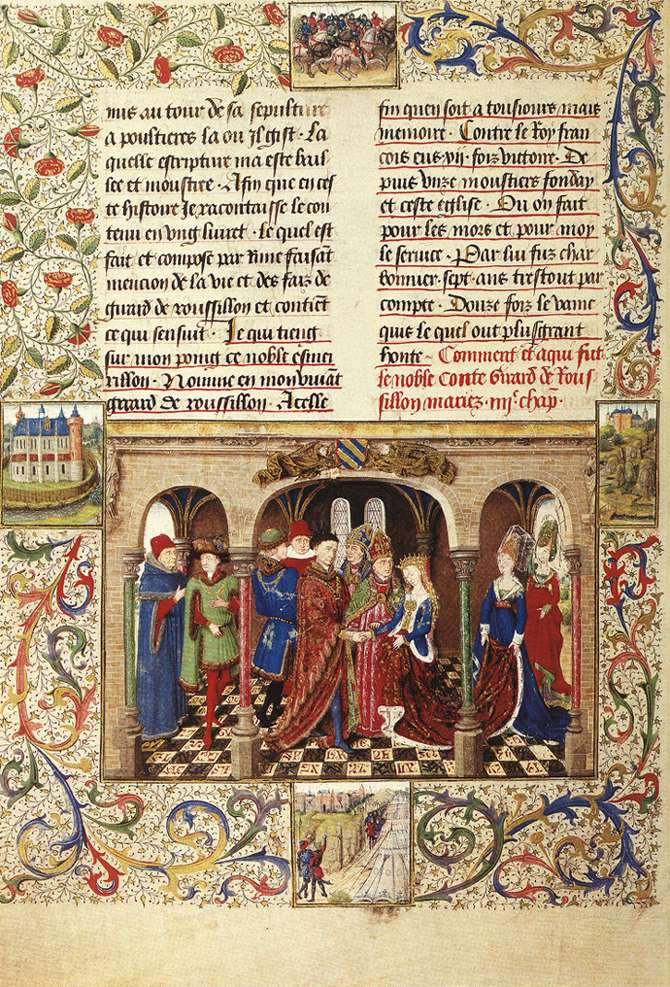 mis au tour de sa sepulture
a poultieres la ou il gist . La
quelle escripture ma este bail
lee et monstree . Afin que en ces
te histoire Je racontaisse le con
tenu en vng liuret . le quel est
fait et compose par Rime faisāt
mencion de la vie et des faiz de
guard de roussillon et contiēt
ce qui sensuit . Je qui tieng
sur mon poing ce noble esmeri
rillon . Nomme en mon viuāt
gerard de roussillon . Acelle
fin quen soit a tousiours mais
memoire . Contre le Roy fran
cois eus vij . foiz victoire . De
puis vnze moustiers fonday
et ceste eglise . Ou on fait
pour les mors et pour moy
le seruice . Par lui fuz char
bonnier . sept . ans trestout par
compte . Douze foiz le vainc
quis le quel out plus grant
honte Comment et a qui fut
le noble Conte Girard de Rous
sillon mariez . iiij.e chap.